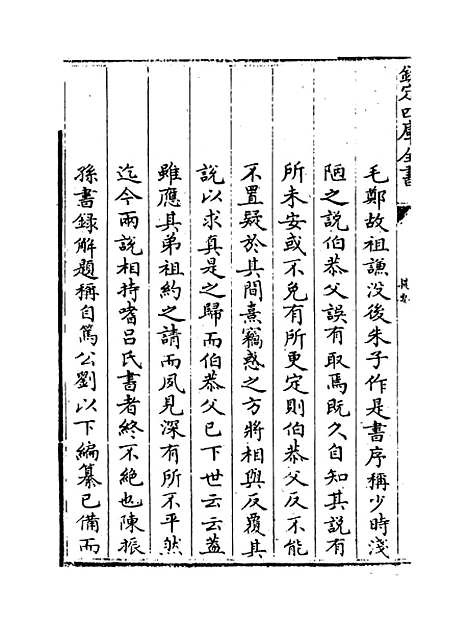 欽定四庫全書
提要
毛鄭故祖謙没後朱子作是書序稱少時淺
陋之説伯恭父誤有取焉既久自知其説有
所未安或不免有所更定則伯恭父反不能
不置疑於其間熹竊惑之方將相與反覆其
説以求真是之歸而伯恭父已下世云云蓋
雖應其弟祖約之請而夙見深有所不平然
迄今兩説相持嗜吕氏書者終不絶也陳振
孫書録解題稱自篤公劉以下編纂已備而